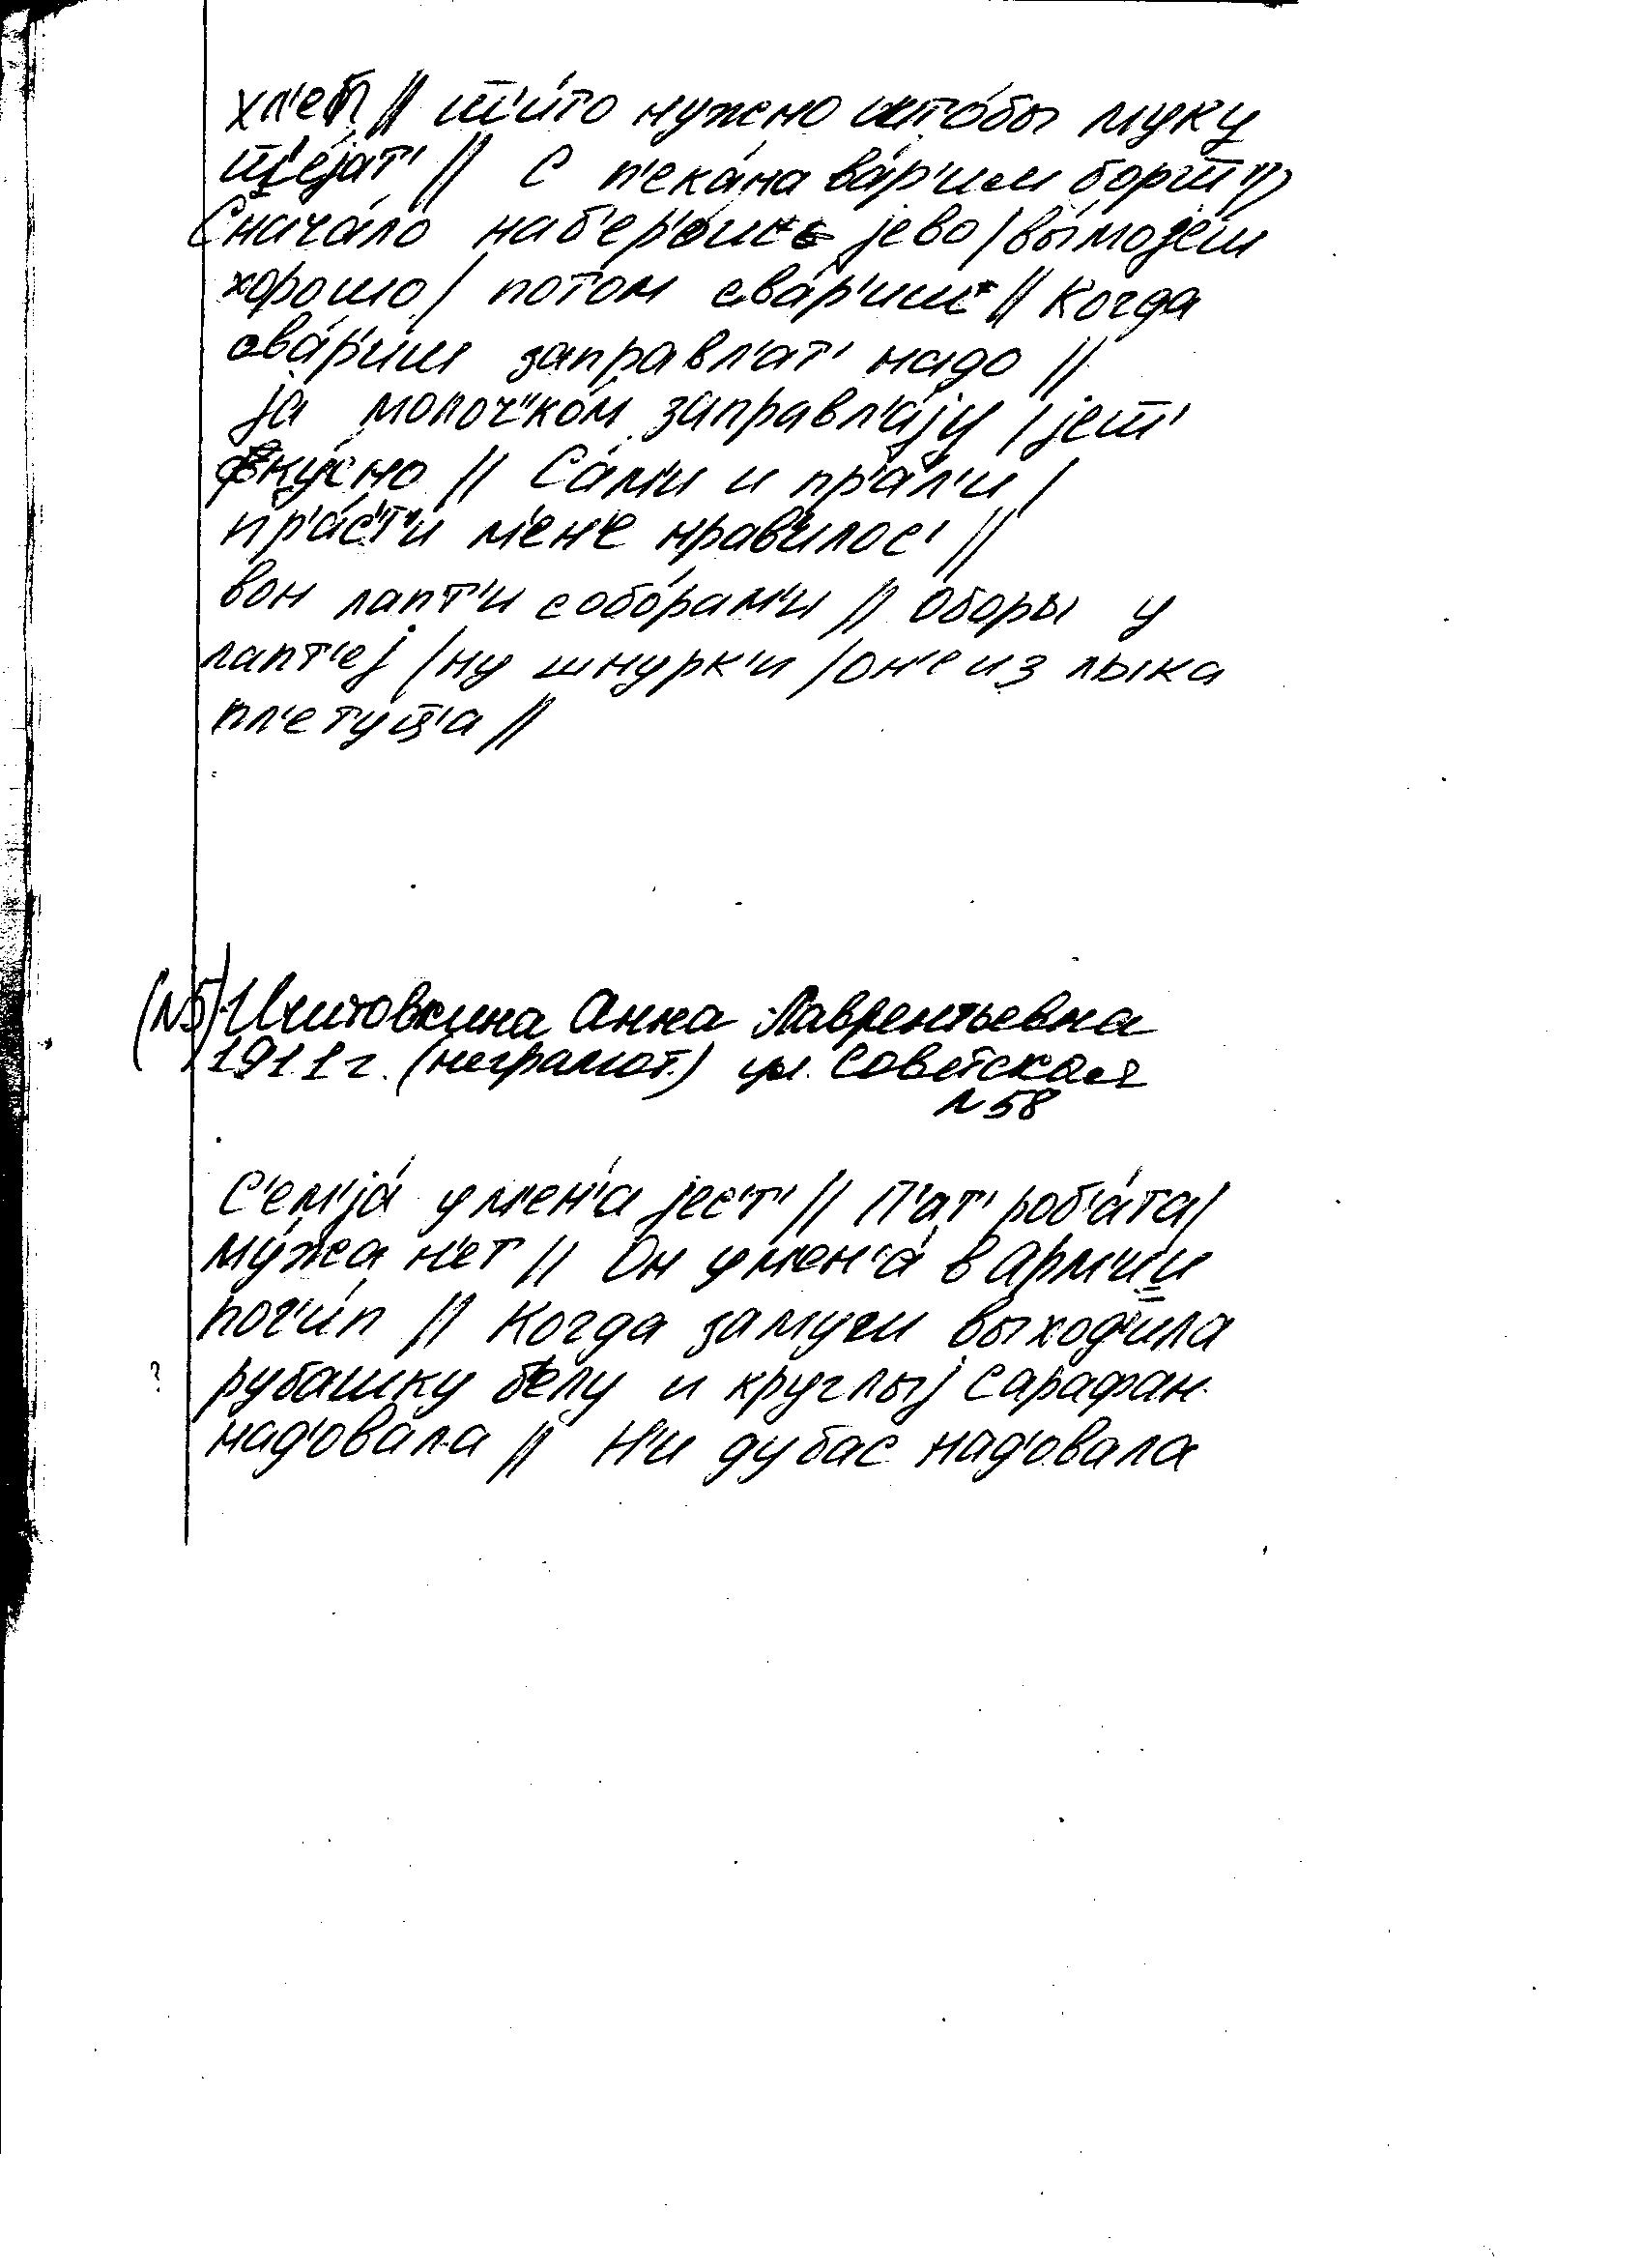 хл'еп || ш'и́то нужно што́бы муку
с'е́јат' || С п'ека́на ва́р'им борш' ||
Снача́ло наб'ер'о́ш јево | вы́мојеш
хорошо | потом сва́р'иш || Когда
сва́р'иш заправл'ат' надо ||
ја молоч'ко́м заправл'а́ју | јеш'
фку́сно || Са́м'и и пр'а́л'и |
пр'а́с'т'и м'ен'е нрав'илос' ||
вон лапт'и с обо́рам'и || Оборы у
лапт'еј | ну шнурк'и | он'е из лыка
пл'етуца ||
(N5) Анна Лаврентьевна
1911 г. (неграмот.) ул. Советская
N 58
С'ем'ја́ у м'ен'а јес'т' || П'ат' роб'а́та |
му́жа н'ет || Он у м'ен'а́ в арм'ии
пог'и́п || Когда замуш выход'ила
? рубашку белу и круглыј сарафан
над'овала || Н'и дубас над'овала